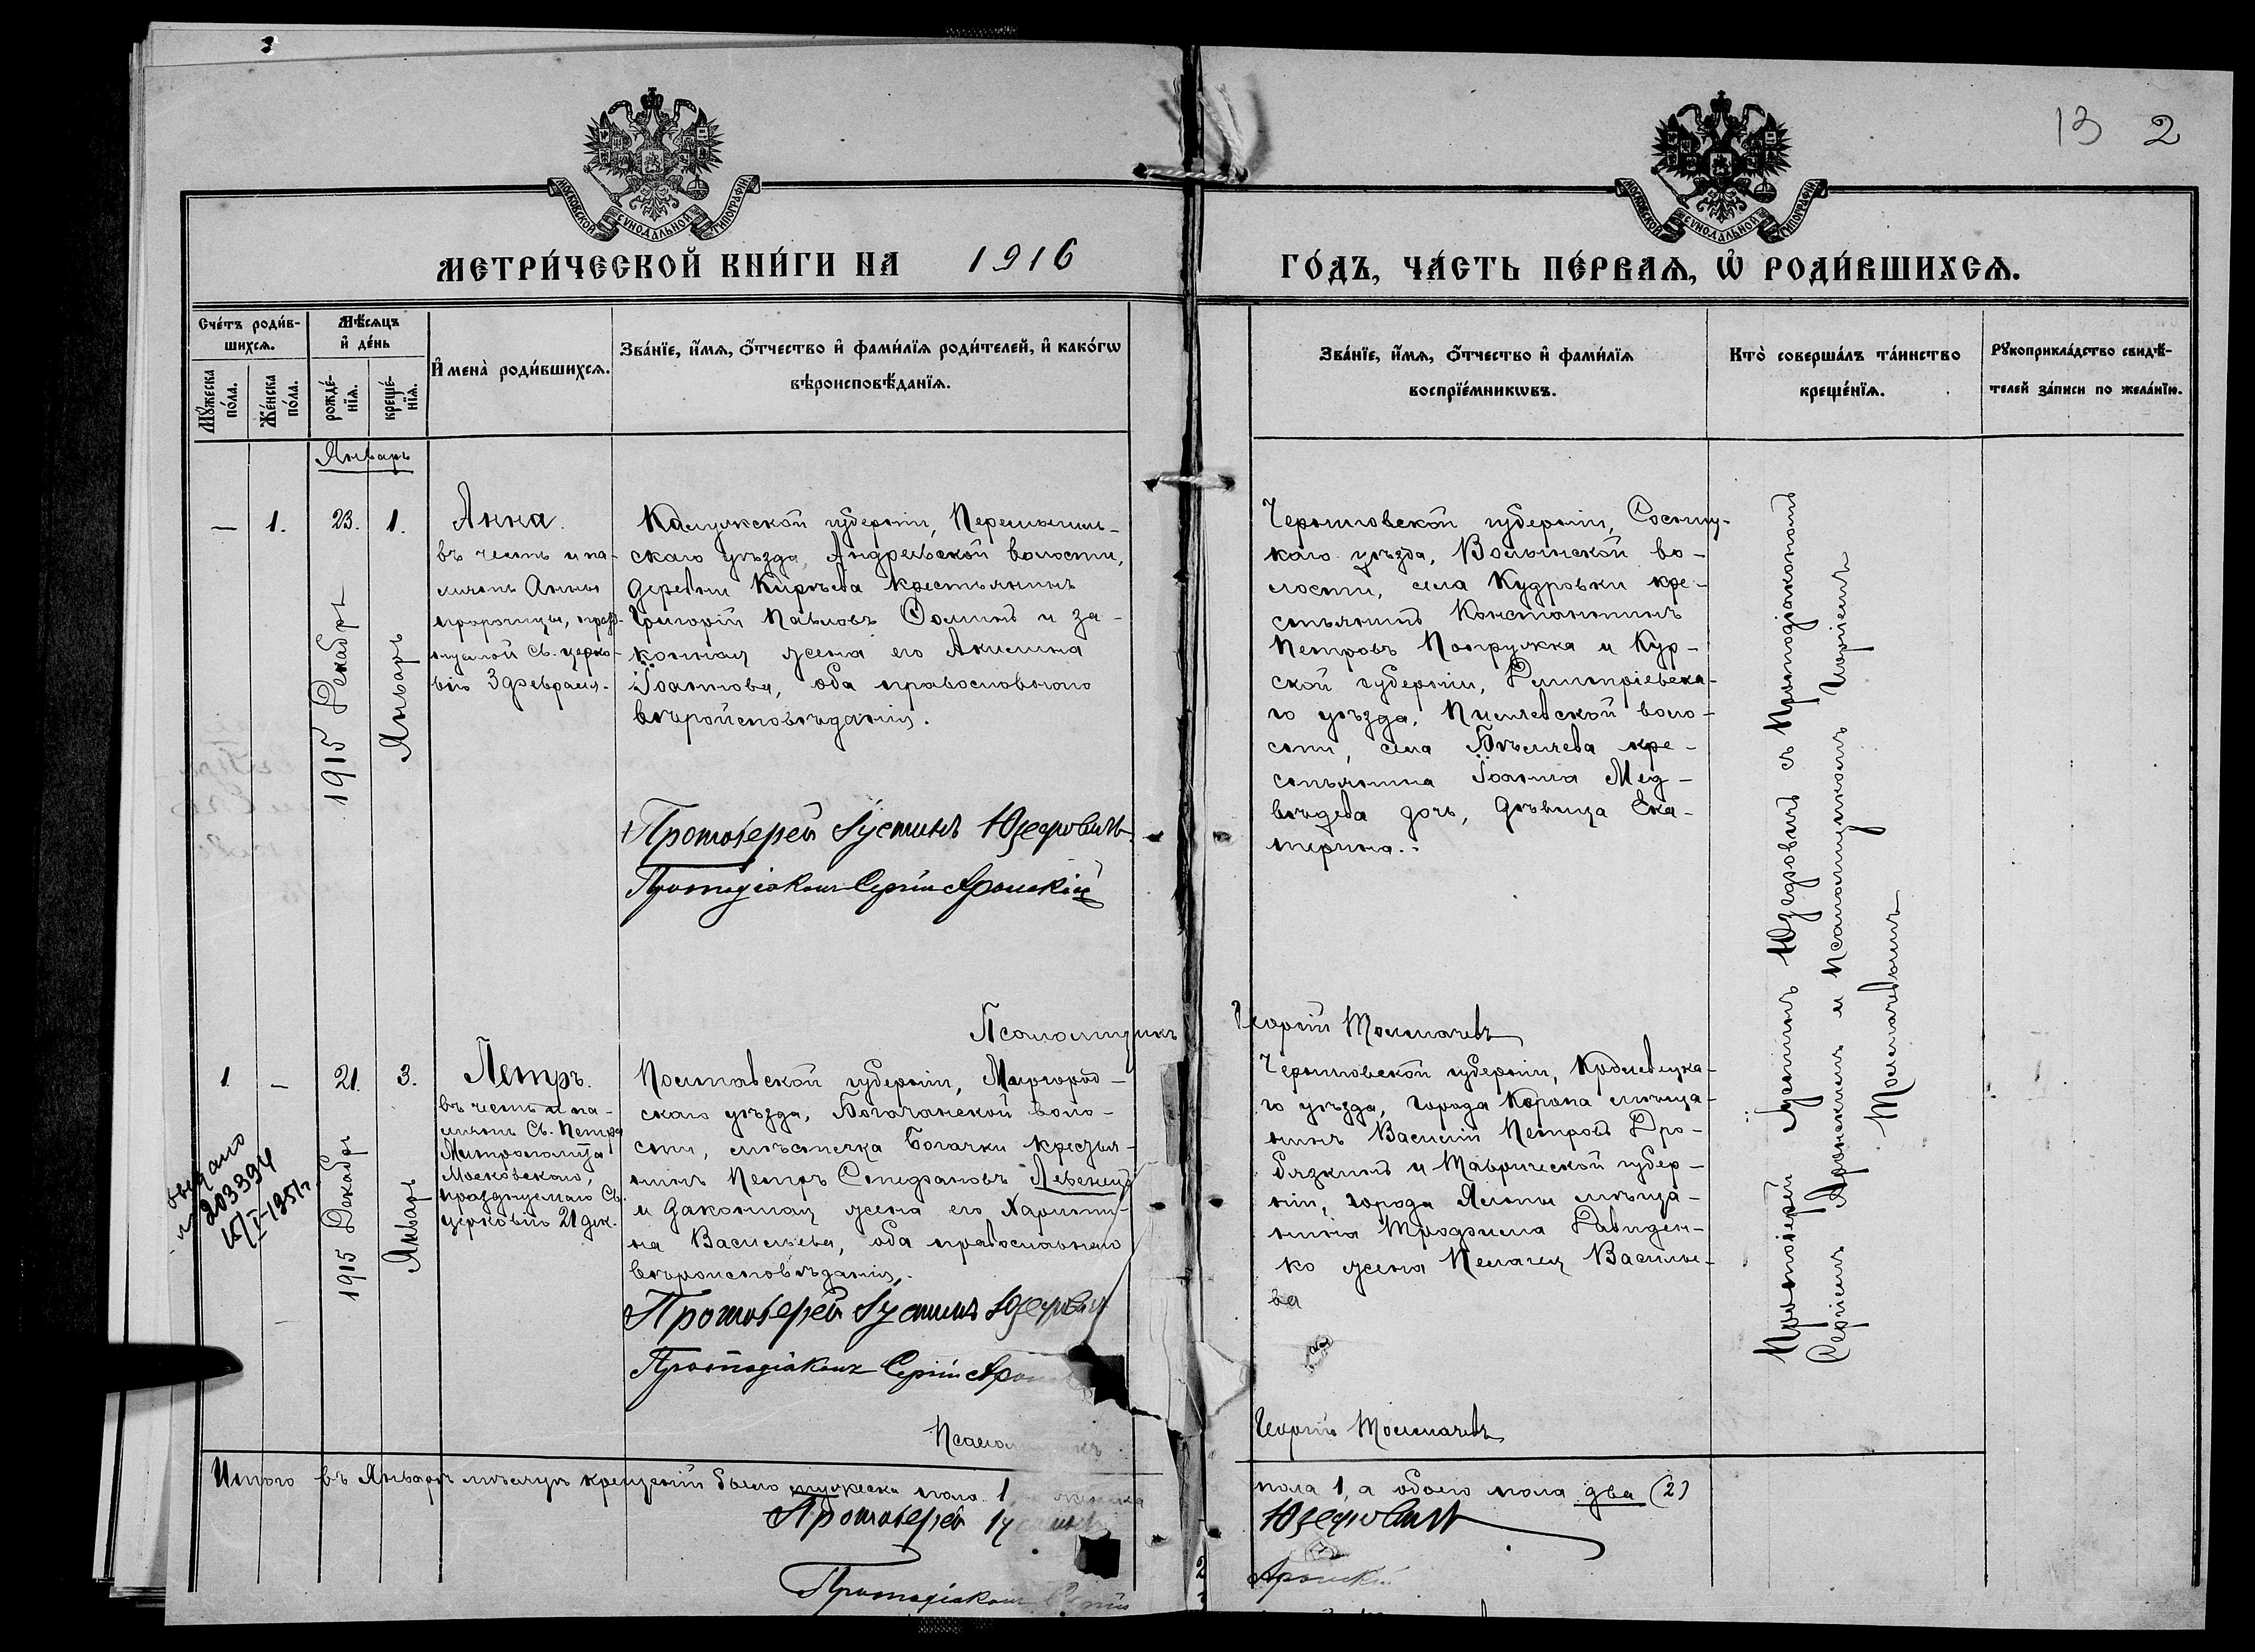 13 2
МОСКОВСКОЙ СУНОДАЛЬНОЙ ТИПОГРАФІИ
МОСКОВСКОЙ СУНОДАЛЬНОЙ ТИПОГРАФІИ
МЕТРИ́ЧЕСКОЙ КНИ́ГИ НА 1916
ГО́ДЪ, ЧА́СТЬ ПЕ́РВАЯ, Ѽ РОДИ́ВШИХСЯ.
Сче́тъ роди́в-
шихся.
Мѣ́сяцъ
и де́нь
Му́жеска
по́ла.
Же́нска
по́ла.
рожде́-
нїя.
креще́-
нїя.
И҆мена̀ роди́вшихся.
Зва́нїе, и҆́мя, ѻ҆́тчество и҆ фами́лїя роди́телей, и҆ како́гѡ
вѣроисповѣ́данїя.
Зва́нїе, и҆́мя, ѻ҆́тчество и҆ фами́лїя
воспрїе́мникѡвъ.
Кто̀ соверша́лъ та́инство
креще́нїя.
Рꙋкоприкла́дство свидѣ́-
телей за́писи по жела́нїю.
Январь
— 1. 23. 1.
1915 Декабрь
Январь
Анна.
въ честь и па-
мять Анны
пророчицы, празд-
нуемой св. церко-
вію 3 февраля.
Калужской губерніи, Перемышль-
скаго уѣзда, Андреевской волости,
деревни Кирѣева крестьянинъ
Григорій Павловъ Ѳоминъ и за-
конная жена его Акилина
Іоаннова, оба православного
вѣроисповѣданія.
Протоіерей Іустинъ Юзефовичъ
Протодіаконъ Сергій Яронскій
Псаломщикъ
Черниговской губерніи, Сосниц-
каго уѣзда, Волынской во-
лости, села Кудровки кре-
стьянинъ Константинъ
Петровъ Попружка и Кур-
ской губерніи, Димитріевска-
го уѣзда, воло-
сти, села Бѣляева кре-
стьянина Іоанна Мед-
вѣдева дочь, дѣвица Ека-
терина.
Георгій Толмачевъ
Протоіерей Іустинъ Юзефовичъ съ Протодіакономъ
Сергіемъ Яронскимъ и Псаломщикомъ Георгіемъ
Толмачевымъ
1. — 21. 3.
выдано
203394
15/I-1951г.
1915 Декабрь
Январь
Петръ.
въ честь и па-
мять Св. Петра
Митрополита
Московскаго,
празднуемаго Св.
церковію 21 дек.
Полтавской губерніи, Миргород-
скаго уѣзда, Богачанской воло-
сти, мѣстечка Богачки крестья-
нинъ Петръ Стефановъ Левенецъ
и законная жена его Харити-
на Васильева, оба православнаго
вѣроисповѣданія.
Протоіерей Іустинъ Юзефовичъ
Протодіаконъ Сергій
Черниговской губерніи, Кролевецка-
го уѣзда, города Коропа мѣща-
нинъ Василій Петровъ Дро-
бязкинъ и Таврической губер-
ніи, города Ялты мѣща-
нина Трофима Давиден-
ко жена Пелагея Василье-
ва
Георгій Толмачевъ
Итого въ Январѣ мѣсяцѣ крещеній было мужеска пола 1,
пола 1, а обоего пола два (2)
Протоіерей
Юзефовичъ
Протодіаконъ Сергій
Яронскій